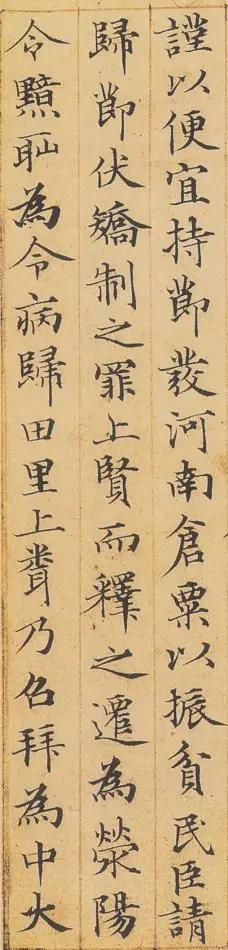 謹以便宜持節發河南倉粟以振貧民臣請
歸節伏矯制之罪上賢而釋之遷為滎陽
令黯耻為令病歸田里上聞乃召拜為中大